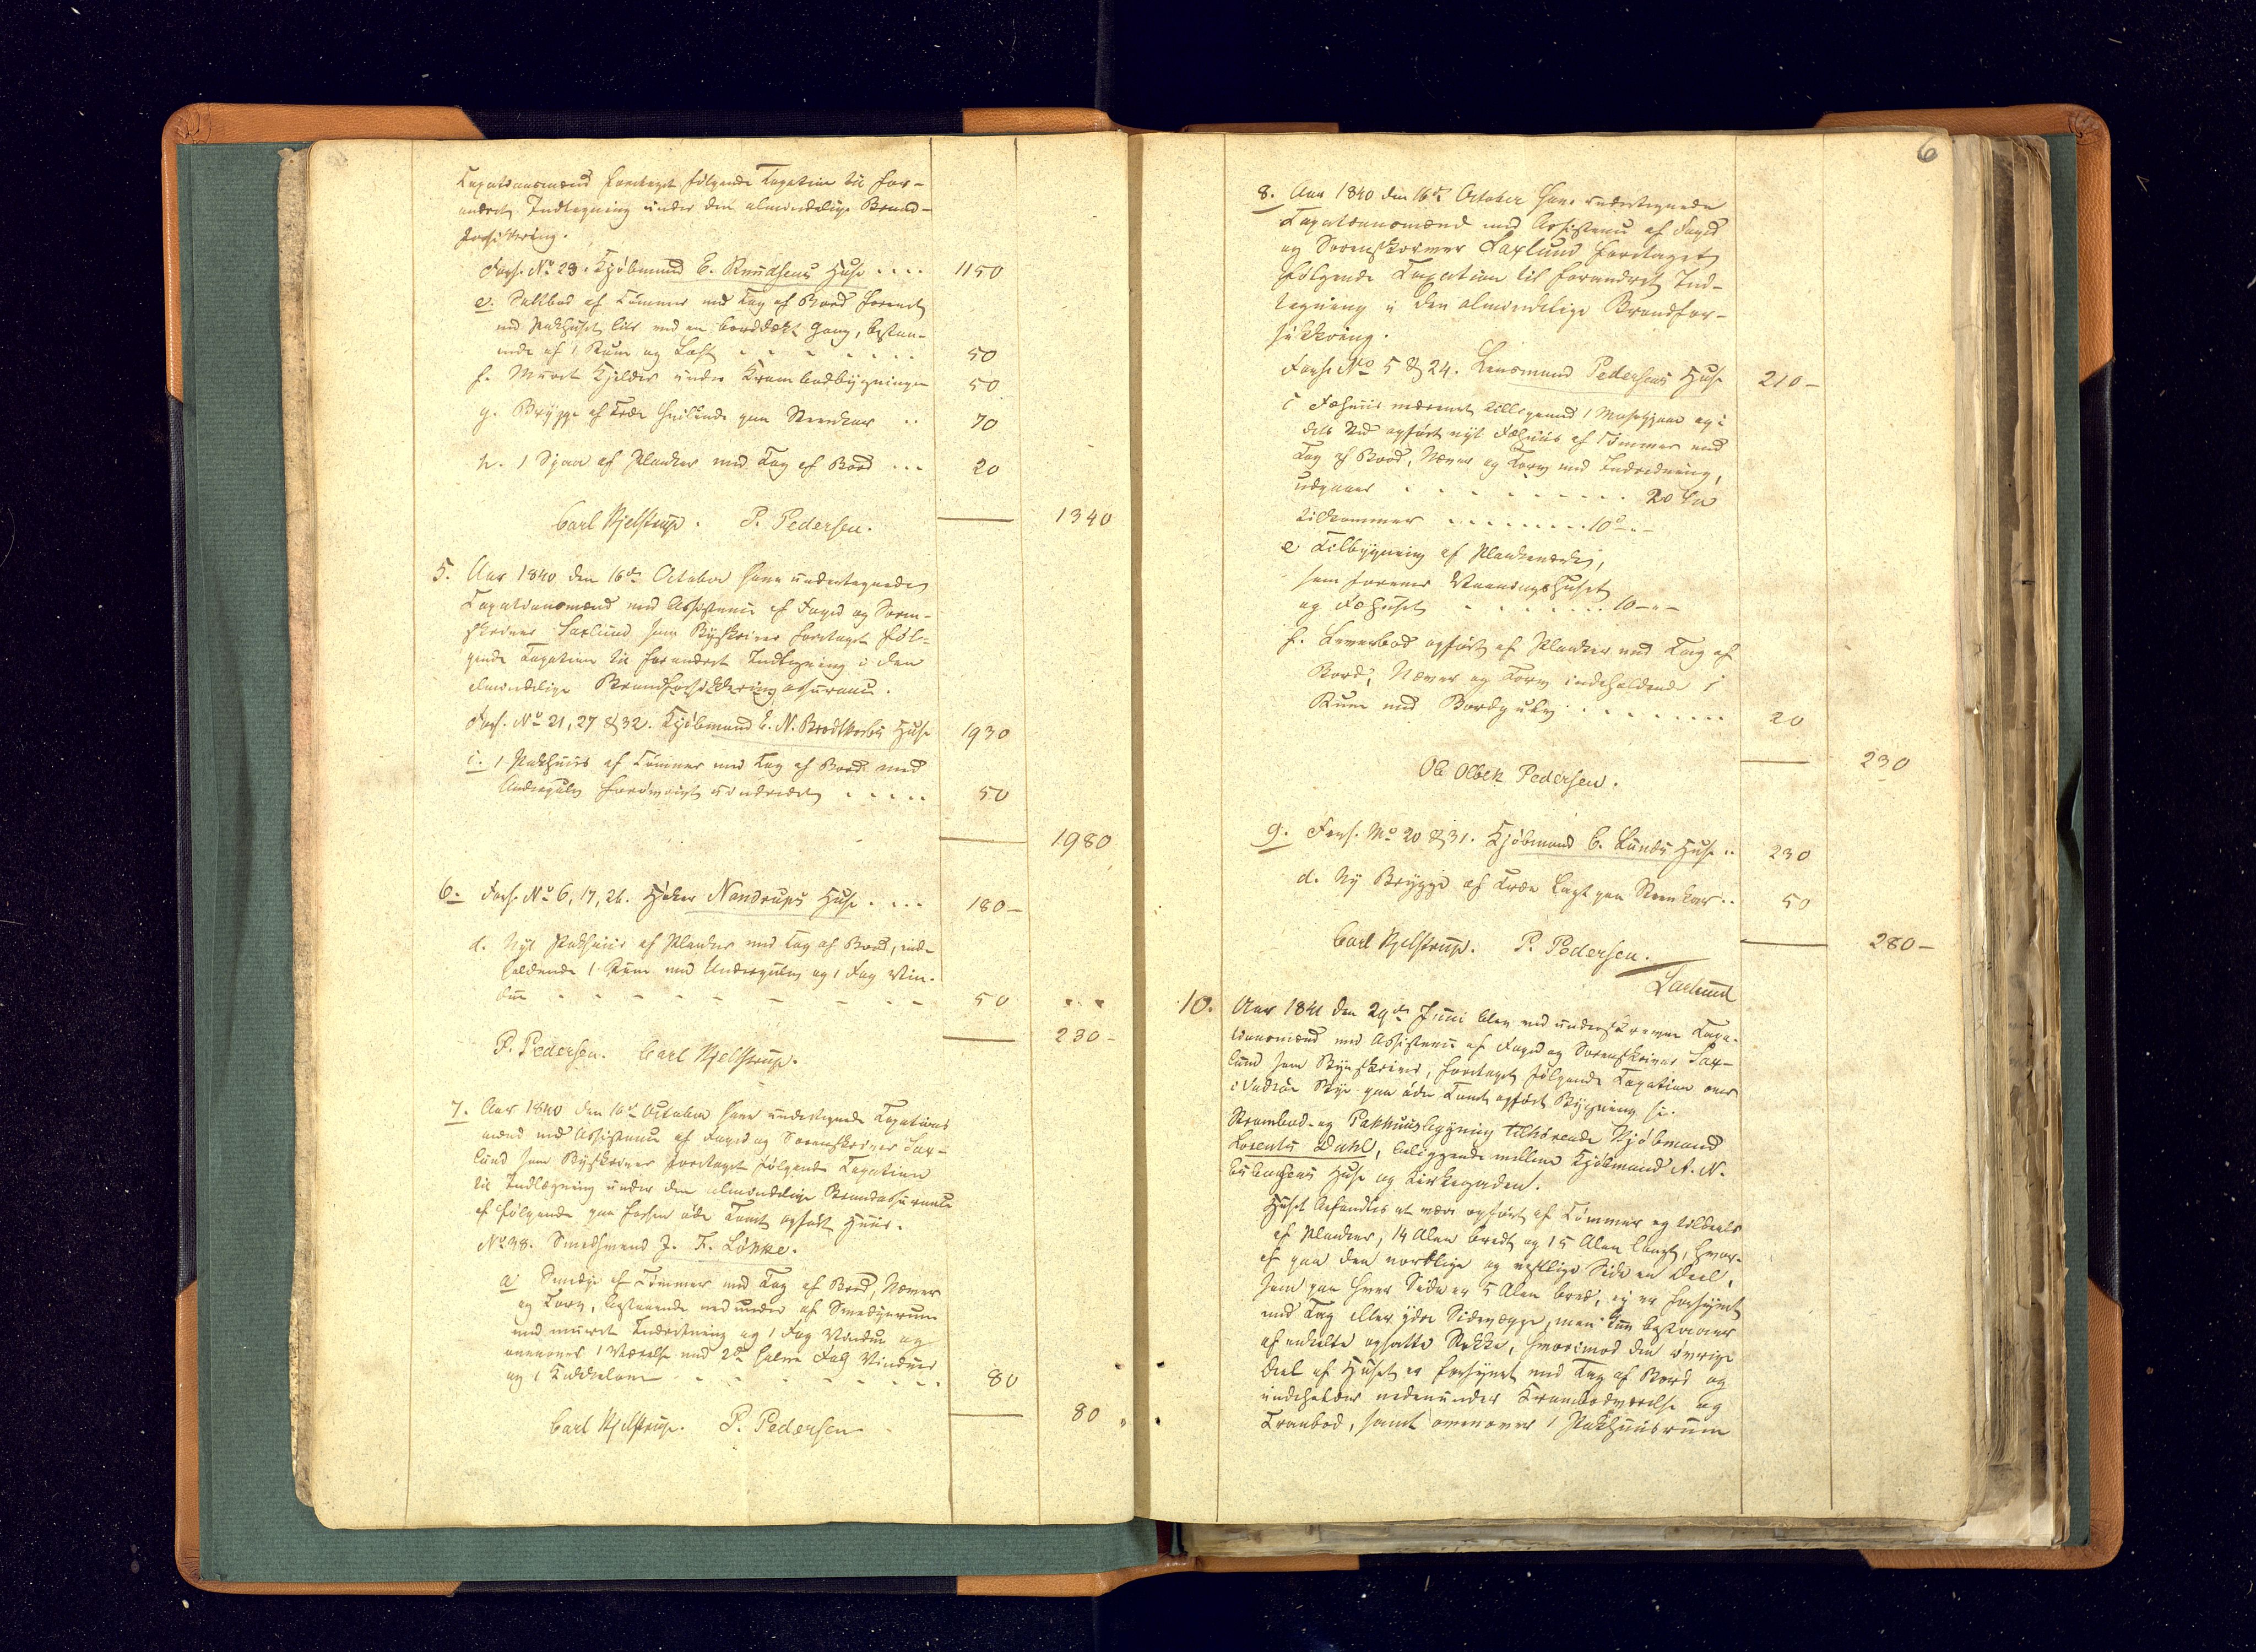 Taxationsmænd foretaget følgende Taxation til for-
andret Indtegning under den almindelige Brand-
forsikkring.
Fors. No 23. Kjøbmand C. Knudsens Huse .... 1150
e. Saltbod af Tømmer med Tag af Bord forenet
med Pakhuset lit. med en borddækt Gang, bestaa-
ende af 1 Rum og Loft 50
f. Muret Kjelder under Krambodbygningen 50
g. Brygge af Træe hvilende paa Steenkar .. 70
h. 1 Sjaa af Planker med Tag af Bord ... 20
1340
Carl Kjelstrup. P. Pedersen.
5. Aar 1840 den 16de October have undertegnede
Taxationsmænd med Assistence af Foged og Soren-
skriver Saxlund som Byskriver foretaget føl-
gende Taxation til forandret Indtegning i den
almindelige Brandforsikkring assurance.
Fors. No 21, 27 & 32. Kjøbmand E. N. Brodtkorbs Huse 1930
i. 1 Pakhuus af Tømmer med Tag af Bord med
Undergulv forøvrigt uindredet ..... 50
1980
6. Fors. No 6, 17, 26. Høker Nandrups Huse .... 180 –
d. Nyt Pakhuus af Planker med Tag af Bord, inde-
holdende 1 Rum med Undergulv og 1 Fag Vin-
due 50
230 –
P. Pedersen. Carl Kjelstrup.
7. Aar 1840 den 16de October have undertegnede Taxations
mænd med Assistence af Foged og Sorenskriver Sax-
lund som Byskriver foretaget følgende Taxation
til Indtegning under den almindelige Brandassurance
af følgende paa forhen øde Tomt opført Huus.
No 38. Smedsvend J. F. Lønke.
a Smedje af Tømmer med Tag af Bord, Næver
og Torv, bestaaende nedunder af Smedjerum
med muret Indretning og 1 Fag Vindue og
ovenover 1 Værelse med 2de halve Fag Vinduer
og 1 Kakkelovn 80
80
Carl Kjelstrup. P. Pedersen
6
8. Aar 1840 den 16de October have undertegnede
Taxationsmænd med Assistence af Foged
og Sorenskriver Saxlund foretaget
følgende Taxation til forandret Ind-
tegning i den almindelige Brandfor-
sikkring.
Fors. No 5 & 24. Lensmand Pedersens Huse 210 –
i Fæhuus nedrevet tilligemed 1 og i
dets Sted opført nyt Fæhuus af Tømmer med
Tag af Bord, Næver og Torv med Indredning,
udgaaer 20
tilkommer 10
e Tilbygning af Plankeværk,
som forener Vaaningshuset
og Fæhuset 10 – " –
f. Leverbod opført af Planker med Tag af
Bord, Næver og Torv indeholdende 1
Rum med Bordgulv 20
230
Ole Olsen Pedersen.
9. Fors. No 20 & 31. Kjøbmand C. Lunds Huse .. 230
d. Ny Brygge af Træe lagt paa Steenkar .. 50
280 –
Carl Kjelstrup. P. Pedersen.
Saxlund
10. Aar 1841 den 29de Juni blev ved underskrevne Taxa-
tionsmænd med Assistence af Foged og Sorenskriver Sax-
lund som Byeskriver, foretaget følgende Taxation over
i Vadsøe Bye paa øde Tomt opført Bygning
Krambod- og Pakhuusbygning tilhørende Kjøbmand
Lorents Dahl, beliggende mellem Kjøbmand A. N.
Huse og Kirkegaden.
Huset befandtes at være opført af Tømmer og tildeels
af Planker, 14 Alen bredt og 15 Alen langt, hvor-
af paa den nordlige og vestlige Side en Deel,
som paa hver Side er 5 Alen bred, ej er forsynet
med Tag eller ydre Sidevægge, men kun bestaaer
af enkelte opsatte Stokke, hvorimod den øvrige
Deel af Huset er forsynet med Tag af Bord og
indeholder nedenunder Krambodværelse og
Tranbod, samt ovenover 1 Pakhuusrum